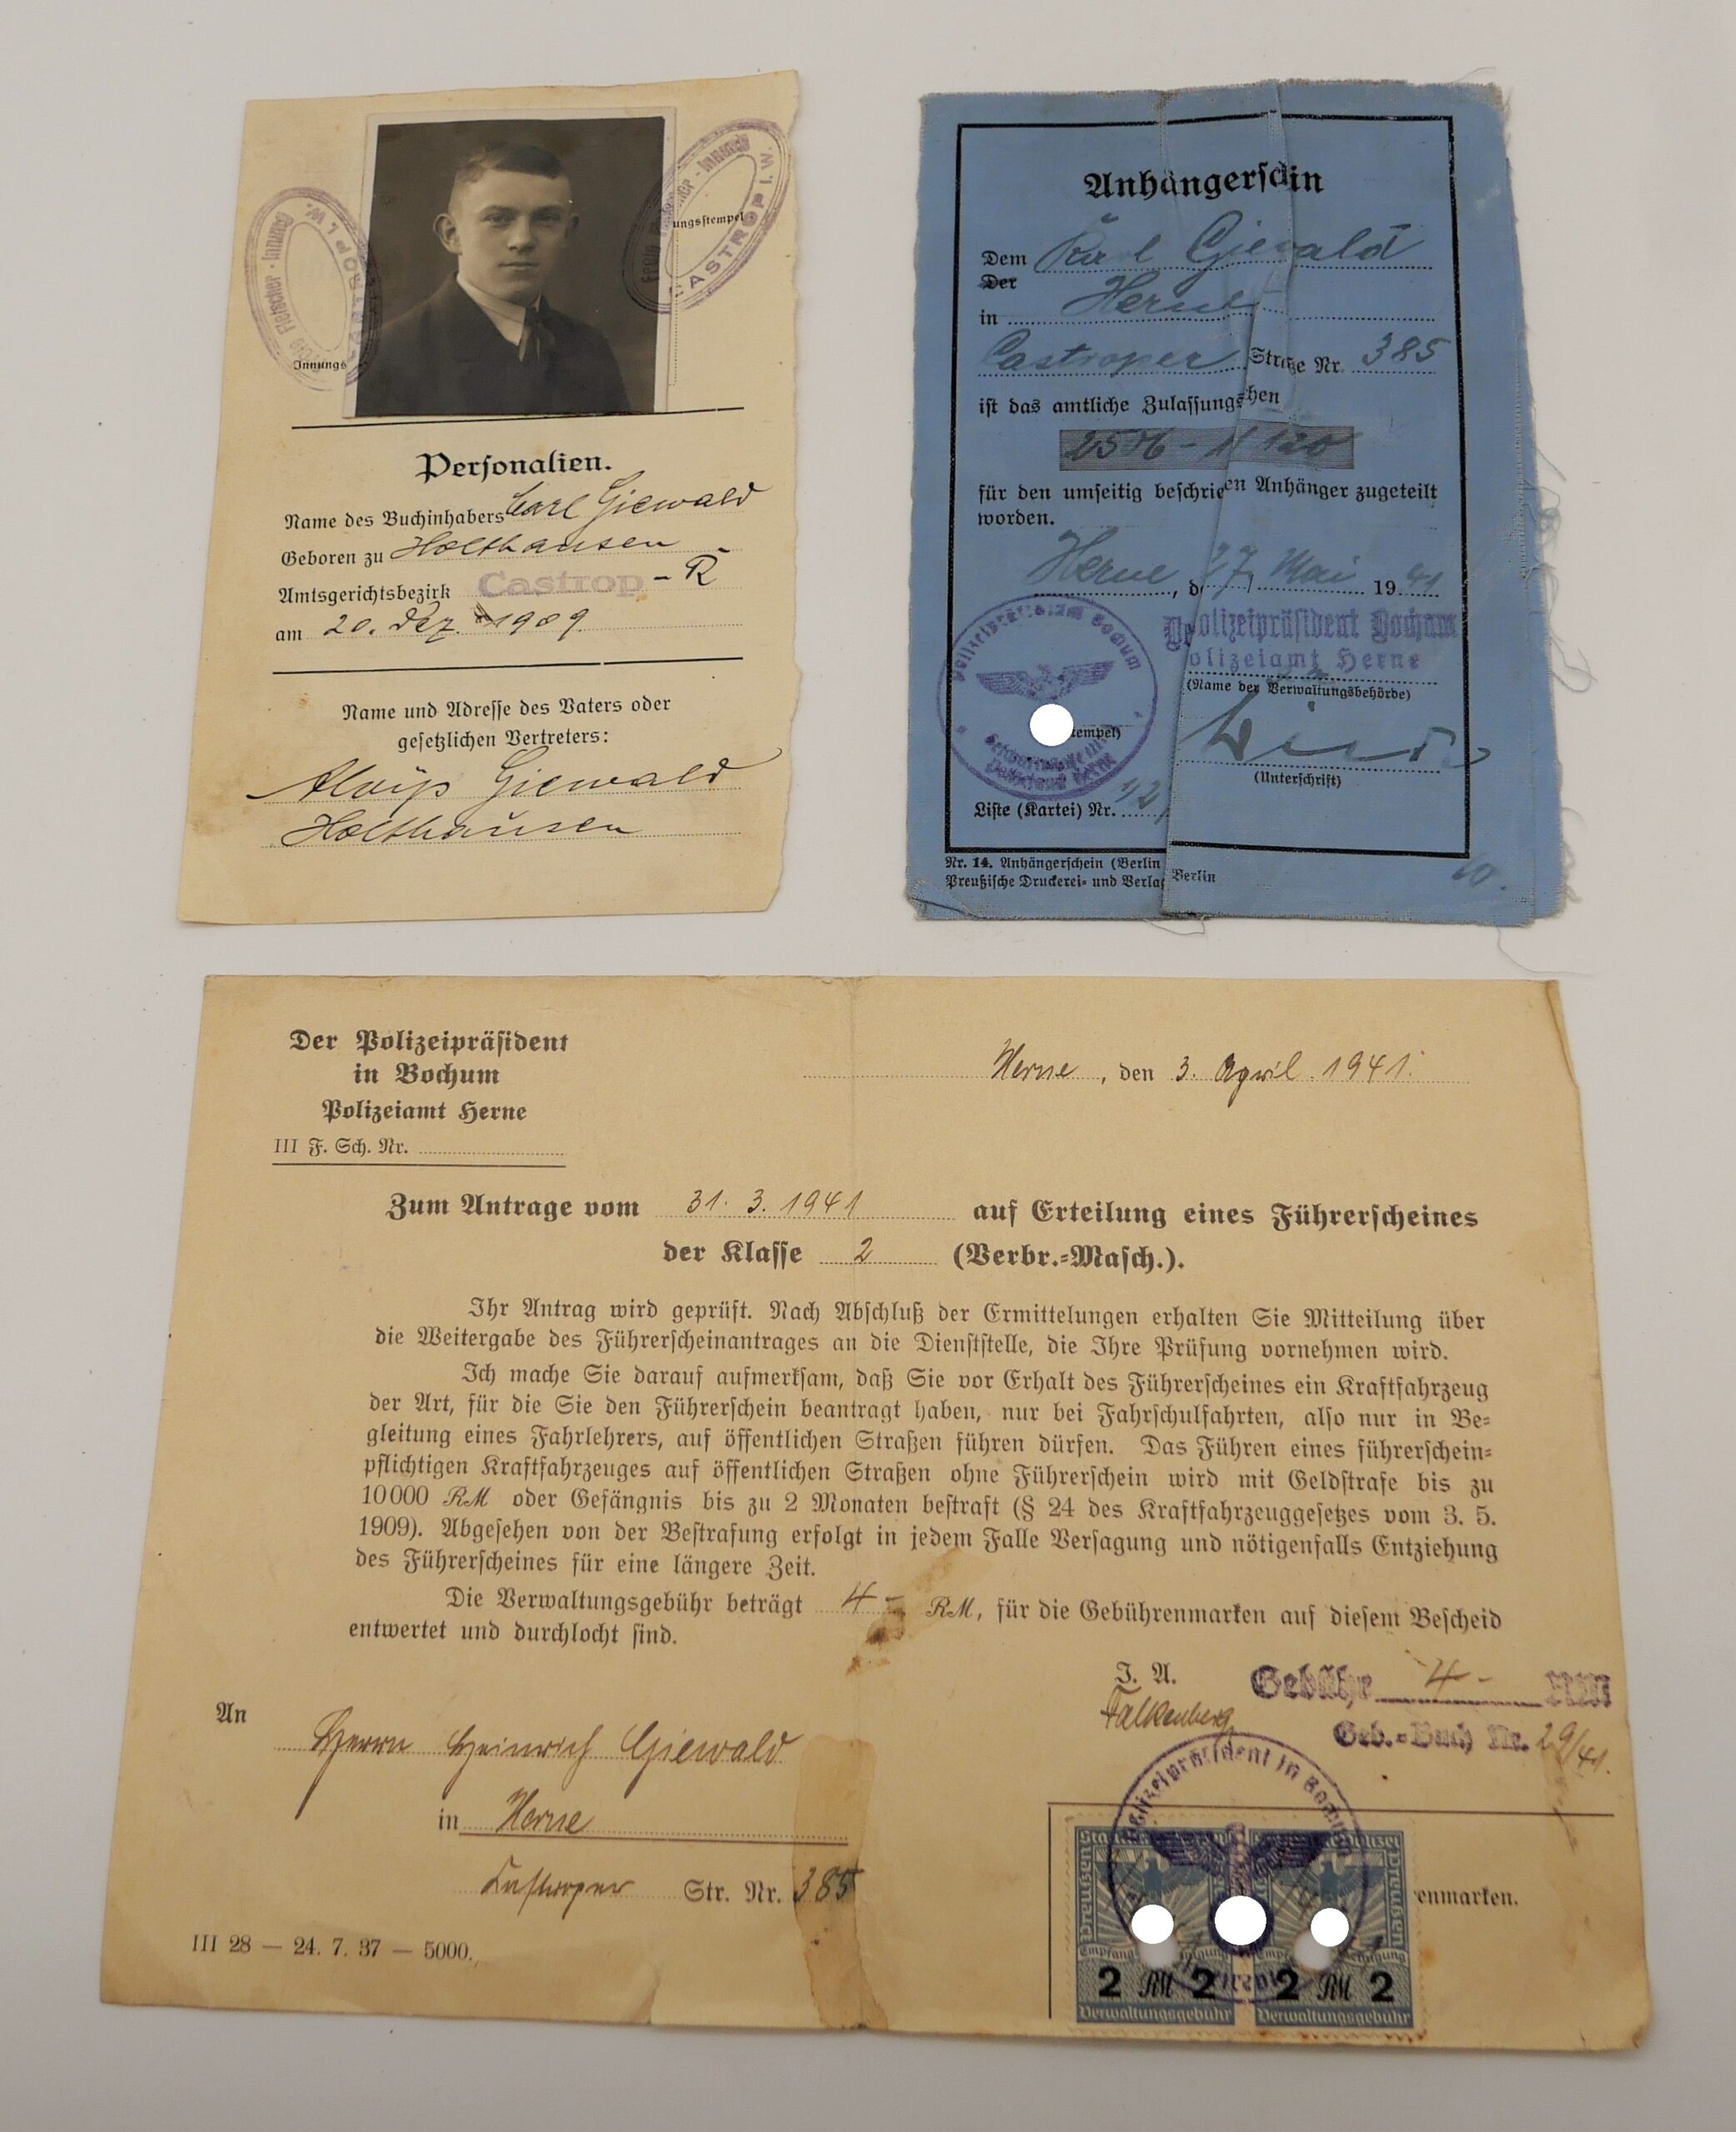 Innungsstempel
CASTROP i. W.
Innungs
CASTROP i. W.
Personalien.
Name des Buchinhabers Carl Giewald
Geboren zu Holthausen
Amtsgerichtsbezirk Castrop - R
am 20. Dez. 1909.
Name und Adresse des Vaters oder
gesetzlichen Vertreters:
Aloys Giewald
Holthausen
Anhängerschin
Dem Karl Giewald
Der
in Herne
Castroper Straße Nr. 385
ist das amtliche Zulassungs hen
für den umseitig beschrie en Anhänger zugeteilt
worden.
Herne, d 27. Mai 1941
Polizeipräsident Bochum
Polizeiamt Herne
(Name der Verwaltungsbehörde)
tempel)
(Unterschrift)
Liste (Kartei) Nr. 12
Nr. 14. Anhängerschein (Berlin
Preußische Druckerei- und Verla Berlin
Der Polizeipräsident
in Bochum
Polizeiamt Herne
III F. Sch. Nr.
Herne, den 3. April 1941.
Zum Antrage vom 31. 3. 1941 auf Erteilung eines Führerscheines
der Klasse 2 (Verbr.=Masch.).
Ihr Antrag wird geprüft. Nach Abschluß der Ermittelungen erhalten Sie Mitteilung über
die Weitergabe des Führerscheinantrages an die Dienststelle, die Ihre Prüfung vornehmen wird.
Ich mache Sie darauf aufmerksam, daß Sie vor Erhalt des Führerscheines ein Kraftfahrzeug
der Art, für die Sie den Führerschein beantragt haben, nur bei Fahrschulfahrten, also nur in Be=
gleitung eines Fahrlehrers, auf öffentlichen Straßen führen dürfen. Das Führen eines führerschein=
pflichtigen Kraftfahrzeuges auf öffentlichen Straßen ohne Führerschein wird mit Geldstrafe bis zu
10000 RM oder Gefängnis bis zu 2 Monaten bestraft (§ 24 des Kraftfahrzeuggesetzes vom 3. 5.
1909). Abgesehen von der Bestrafung erfolgt in jedem Falle Versagung und nötigenfalls Entziehung
des Führerscheines für eine längere Zeit.
Die Verwaltungsgebühr beträgt 4 - RM, für die Gebührenmarken auf diesem Bescheid
entwertet und durchlocht sind.
I. A.
Falkenberg
Gebühr 4 - RM
Geb.-Buch Nr. 29/41.
An
Herrn Heinrich Giewald
in Herne
Castroper Str. Nr. 385
III 28 — 24. 7. 37 — 5000.
Polizeipräsident in Bochum
enmarken.
2 RM 2 2 RM 2
Verwaltungsgebühr Verwaltungsgebühr